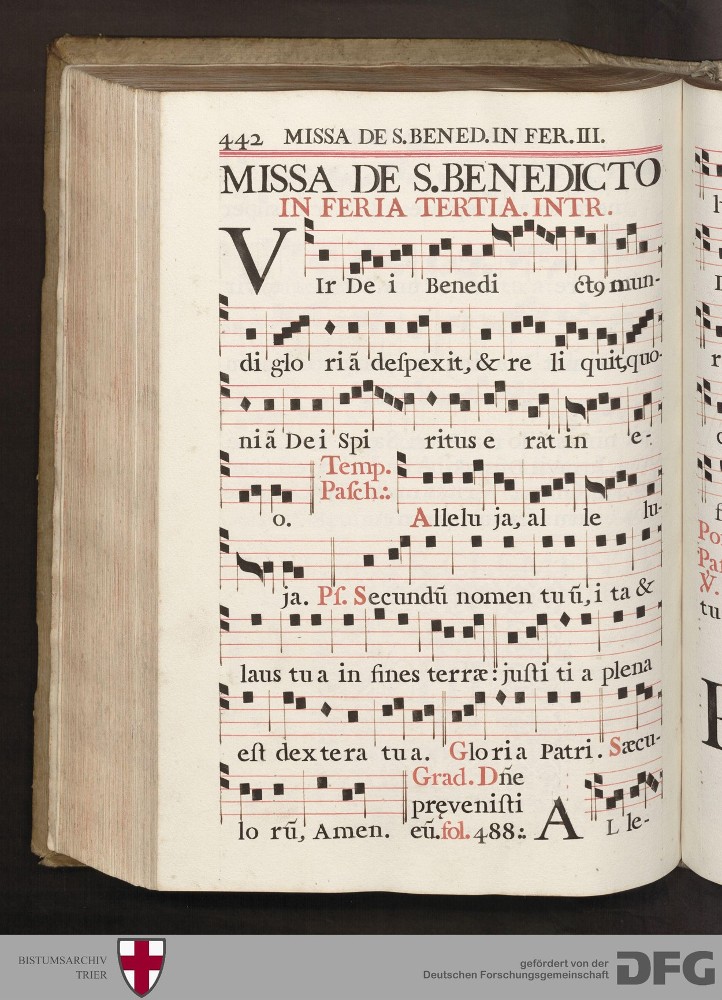 442 MISSA DE S. BENED. IN FER. III.
MISSA DE S. BENEDICTO
IN FERIA TERTIA. INTR.
VIr De i Benedi ctꝰ mun-
di glo riã deſpexit, & re li quit, quo-
niã Dei Spi ritus e rat in e-
o. Temp. Paſch.: Allelu ja, al le lu-
ja. Pſ. Secundũ nomen tuũ, i ta &
laus tua in fines terræ: juſti ti a plena
eſt dextera tua. Gloria Patri. Sæcu-
lo rũ, Amen. Grad. Dñe
pręveniſti
eũ. fol. 488:. AL le-
BISTUMSARCHIV
TRIER
gefördert von der
Deutschen Forschungsgemeinschaft
DFG
Pſ.
tu